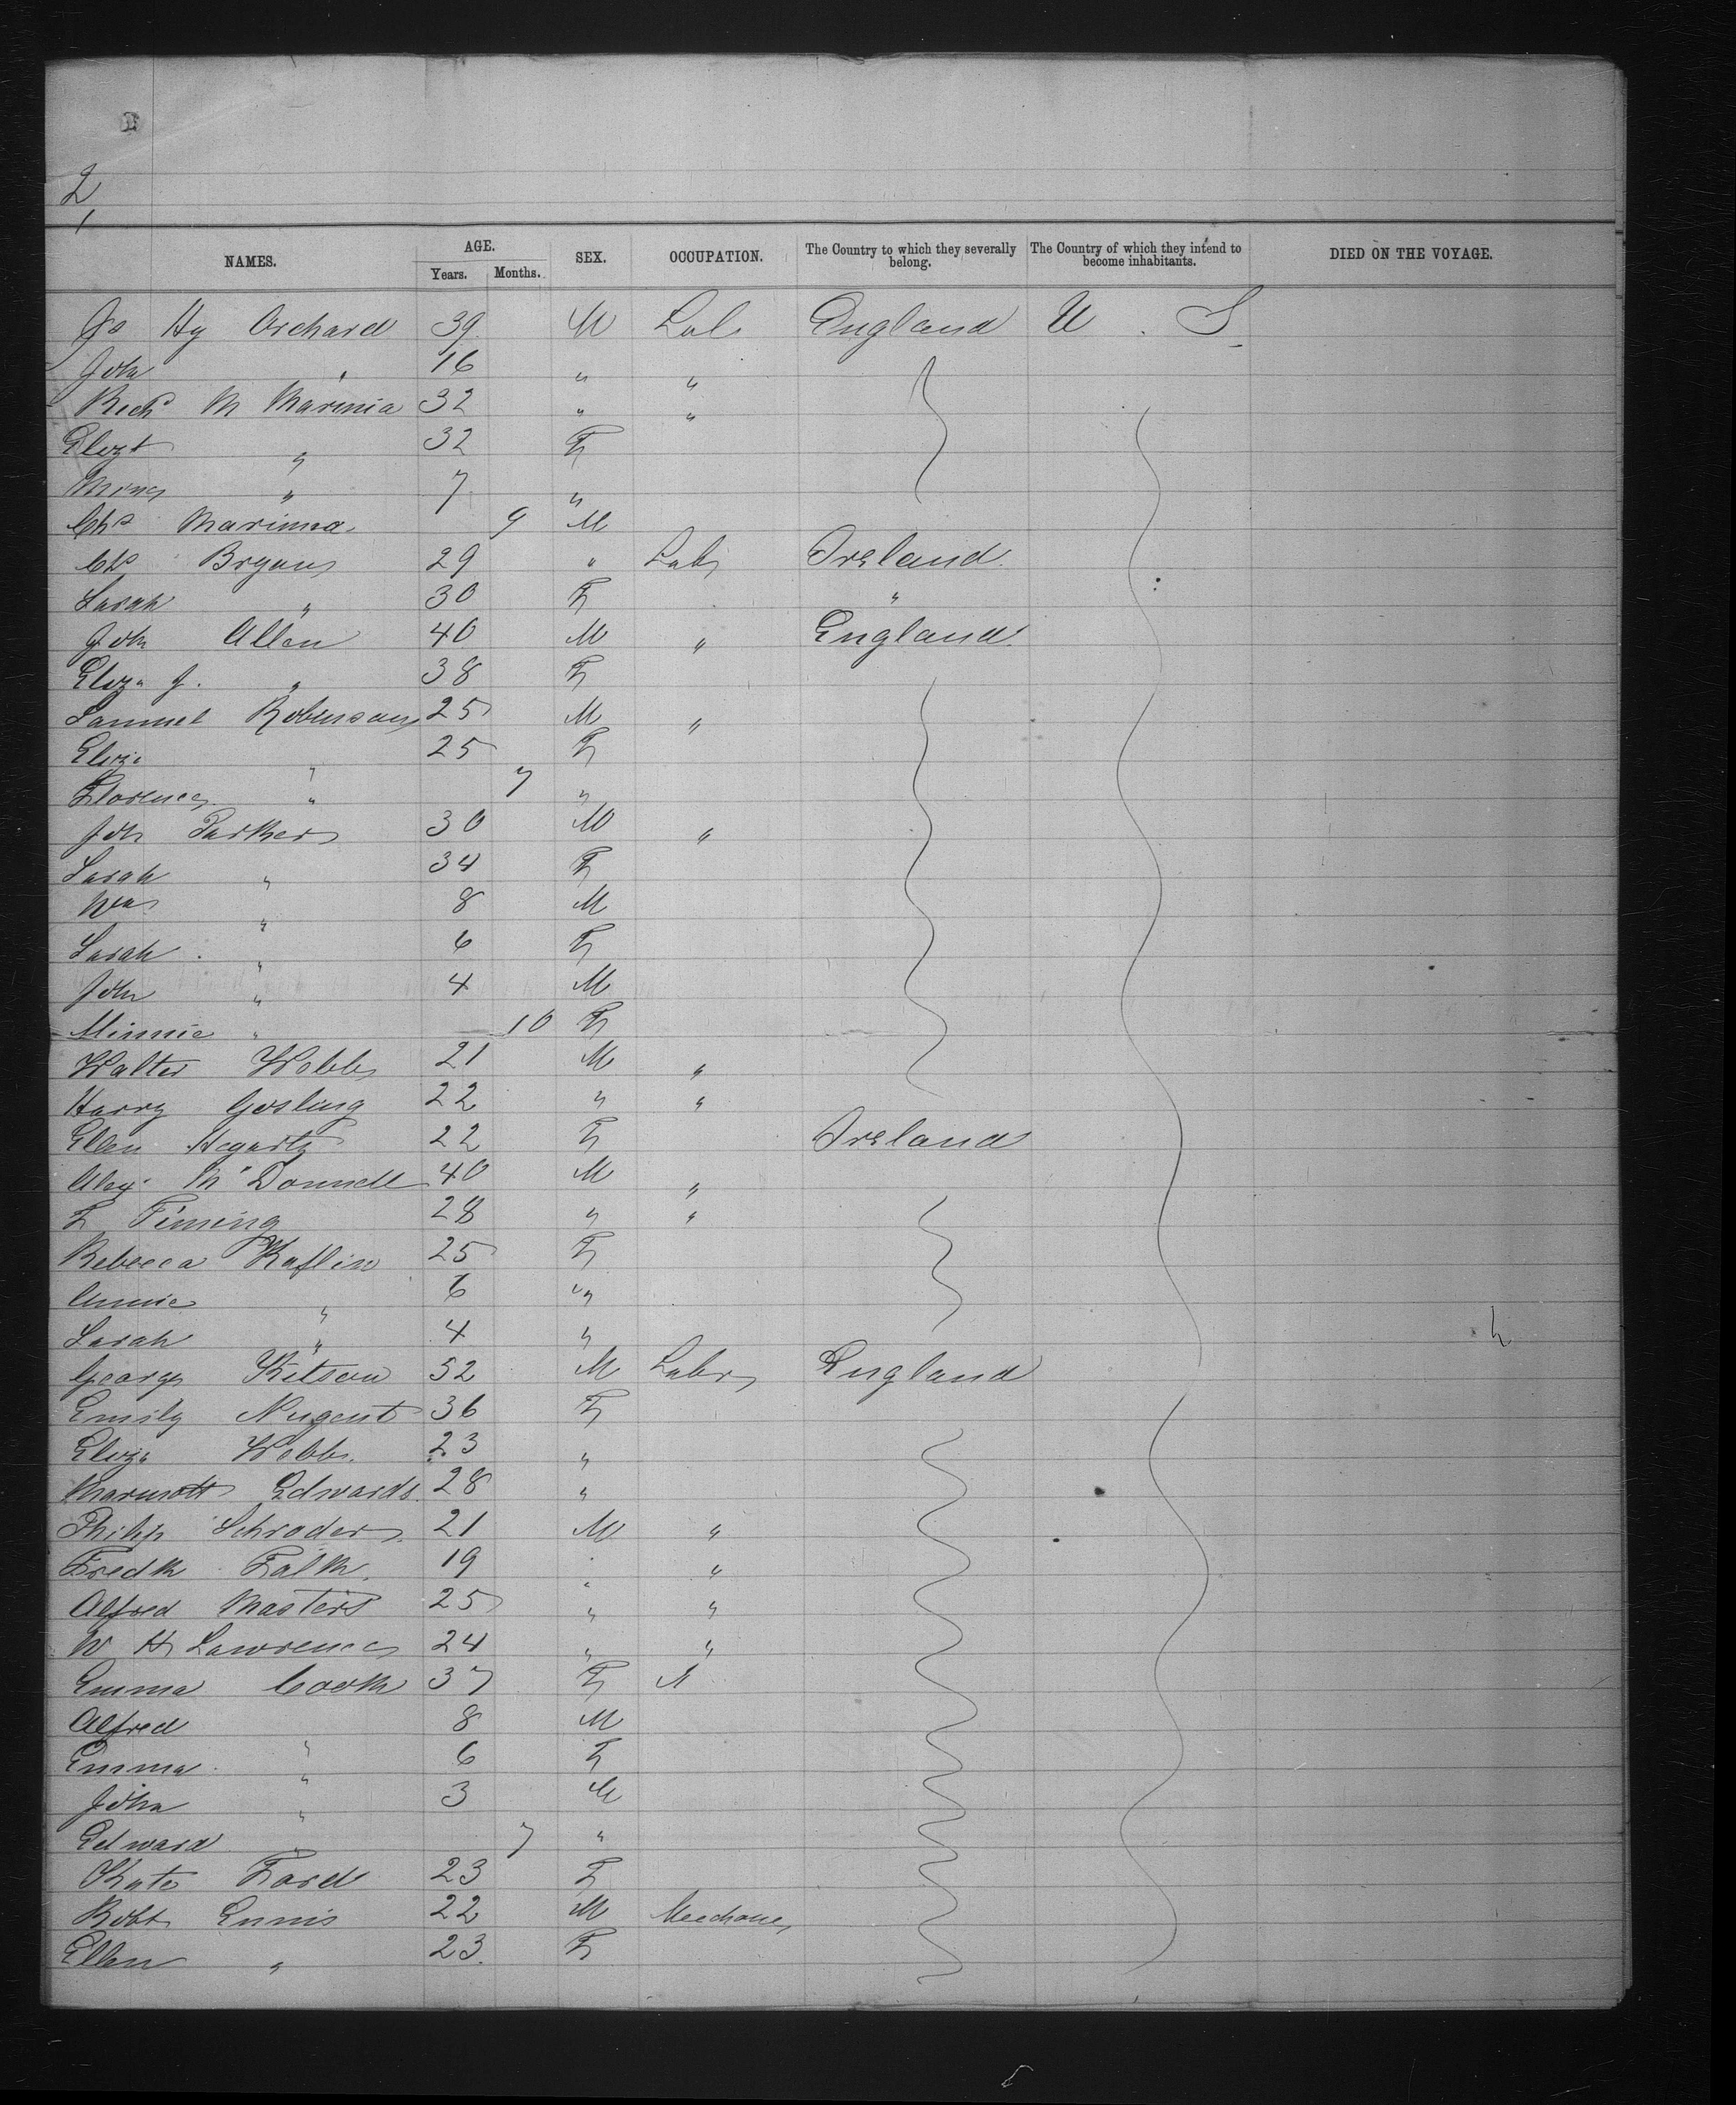 2
NAMES. AGE. Years. Months. SEX. OCCUPATION. The Country to which they severally belong. The Country of which they intend to become inhabitants. DIED ON THE VOYAGE.
Js Hy Orchard 39 M Lab England U. S.
John " 16 " "
Richd M Marinia 32 " "
Elizt " 32 F
" 7 "
Chs Marinia 9 M
Chs Bryans 29 " Labr Ireland
Sarah " 30 F "
John Allen 40 M " England
Eliza J. " 38 F
Samuel Robinson 25 M "
Eliza " 25 F
Florence " 7 "
John Parker 30 M "
Sarah " 34 F
Wm " 8 M
Sarah " 6 F
John " 4 M
Minnie " 10 F
Walter Webb 21 M "
Harry Gosling 22 " "
Ellen Hegarty 22 F Ireland
Alex. McDonnell 40 M "
F Fiming 28 " "
Rebecca Kaflin 25 F
Annie " 6 "
Sarah " 4 "
George Kitson 52 M Labr England
Emily Nugent 36 F
Eliza Webb 23 "
Edwards 28 "
Philip Schroder 21 M "
Fredk Falk 19 " "
Alfred Masters 25 " "
W H Lawrence 24 " "
Emma Cook 37 F
Alfred " 8 M
Emma " 6 F
John " 3 M
Edward " 7 "
Kate Ford 23 F
Robt Ennis 22 M Mechanic
Ellen " 23 F